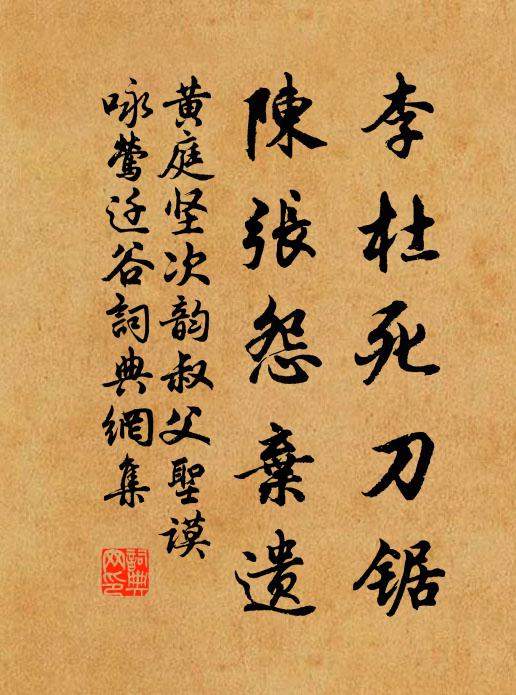 李杜死刀锯
陳張怨棄遗
黄庭坚次韵叔父聖谟
咏鶯迁谷詞典網集
詞典網印